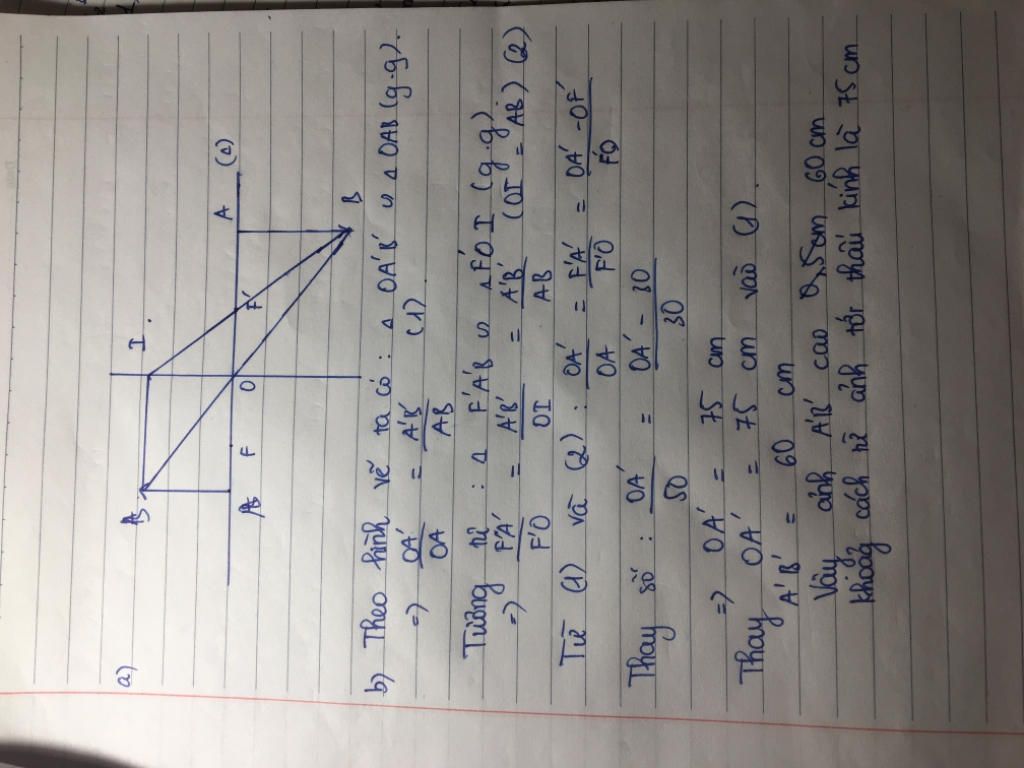 a)
I
B
A
F
O
F'
A
(Δ)
B
b) Theo hình vẽ ta có : Δ OA'B' ∽ Δ OAB (g.g).
=> OA'/OA = A'B'/AB (1)
Tương tự : Δ F'A'B ∽ Δ F'OI (g.g)
=> F'A'/F'O = A'B'/OI = A'B'/AB (OI = AB) (2)
Từ (1) và (2) : OA'/OA = F'A'/F'O = OA' - OF'/F'O
Thay số : OA'/50 = OA' - 30/30
=> OA' = 75 cm
Thay OA' = 75 cm vào (1).
A'B' = 60 cm
Vậy ảnh A'B' cao 60 cm
khoảng cách từ ảnh tới thấu kính là 75 cm